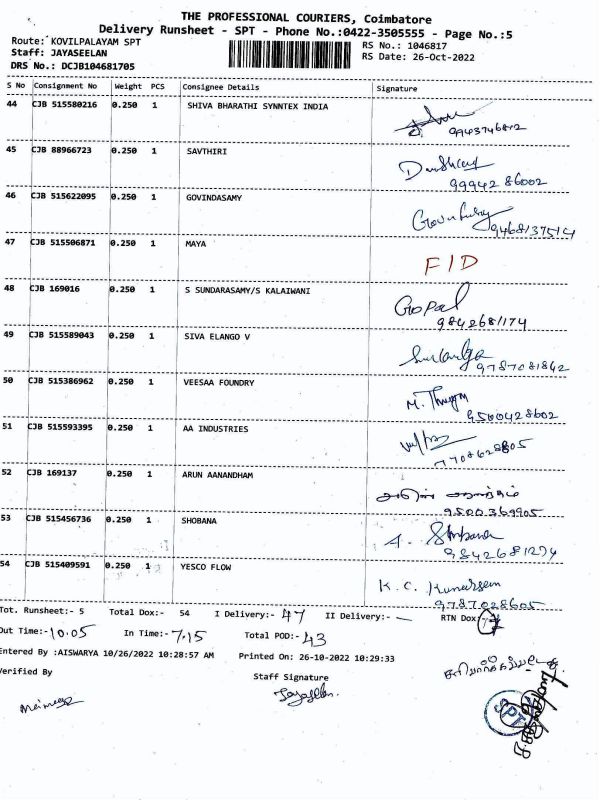 THE PROFESSIONAL COURIERS, Coimbatore
Delivery Runsheet - SPT - Phone No.:0422-3505555 - Page No.:5
Route: KOVILPALAYAM SPT
RS No.: 1046817
Staff: JAYASEELAN
RS Date: 26-Oct-2022
DRS No.: DCJB104681705
S No Consignment No Weight PCS Consignee Details Signature
44 CJB 515580216 0.250 1 SHIVA BHARATHI SYNNTEX INDIA
9943746812
45 CJB 88966723 0.250 1 SAVTHIRI
9994286002
46 CJB 515622095 0.250 1 GOVINDASAMY
9468137514
47 CJB 515506871 0.250 1 MAYA
F/D
48 CJB 169016 0.250 1 S SUNDARASAMY/S KALAIWANI
Gopal
9842681174
49 CJB 515589043 0.250 1 SIVA ELANGO V
9787081842
50 CJB 515386962 0.250 1 VEESAA FOUNDRY
9500428602
51 CJB 515593395 0.250 1 AA INDUSTRIES
7708628805
52 CJB 169137 0.250 1 ARUN AANANDHAM
9500369905
53 CJB 515456736 0.250 1 SHOBANA
9842681274
54 CJB 515409591 0.250 1 YESCO FLOW
K.C.
9787028605
Tot. Runsheet:- 5 Total Dox:- 54 I Delivery:- 47 II Delivery:- — RTN Dox: 7
Out Time:- 10.05 In Time:- 7.15 Total POD:- 43
Entered By :AISWARYA 10/26/2022 10:28:57 AM Printed On: 26-10-2022 10:29:33
Verified By Staff Signature
SPT